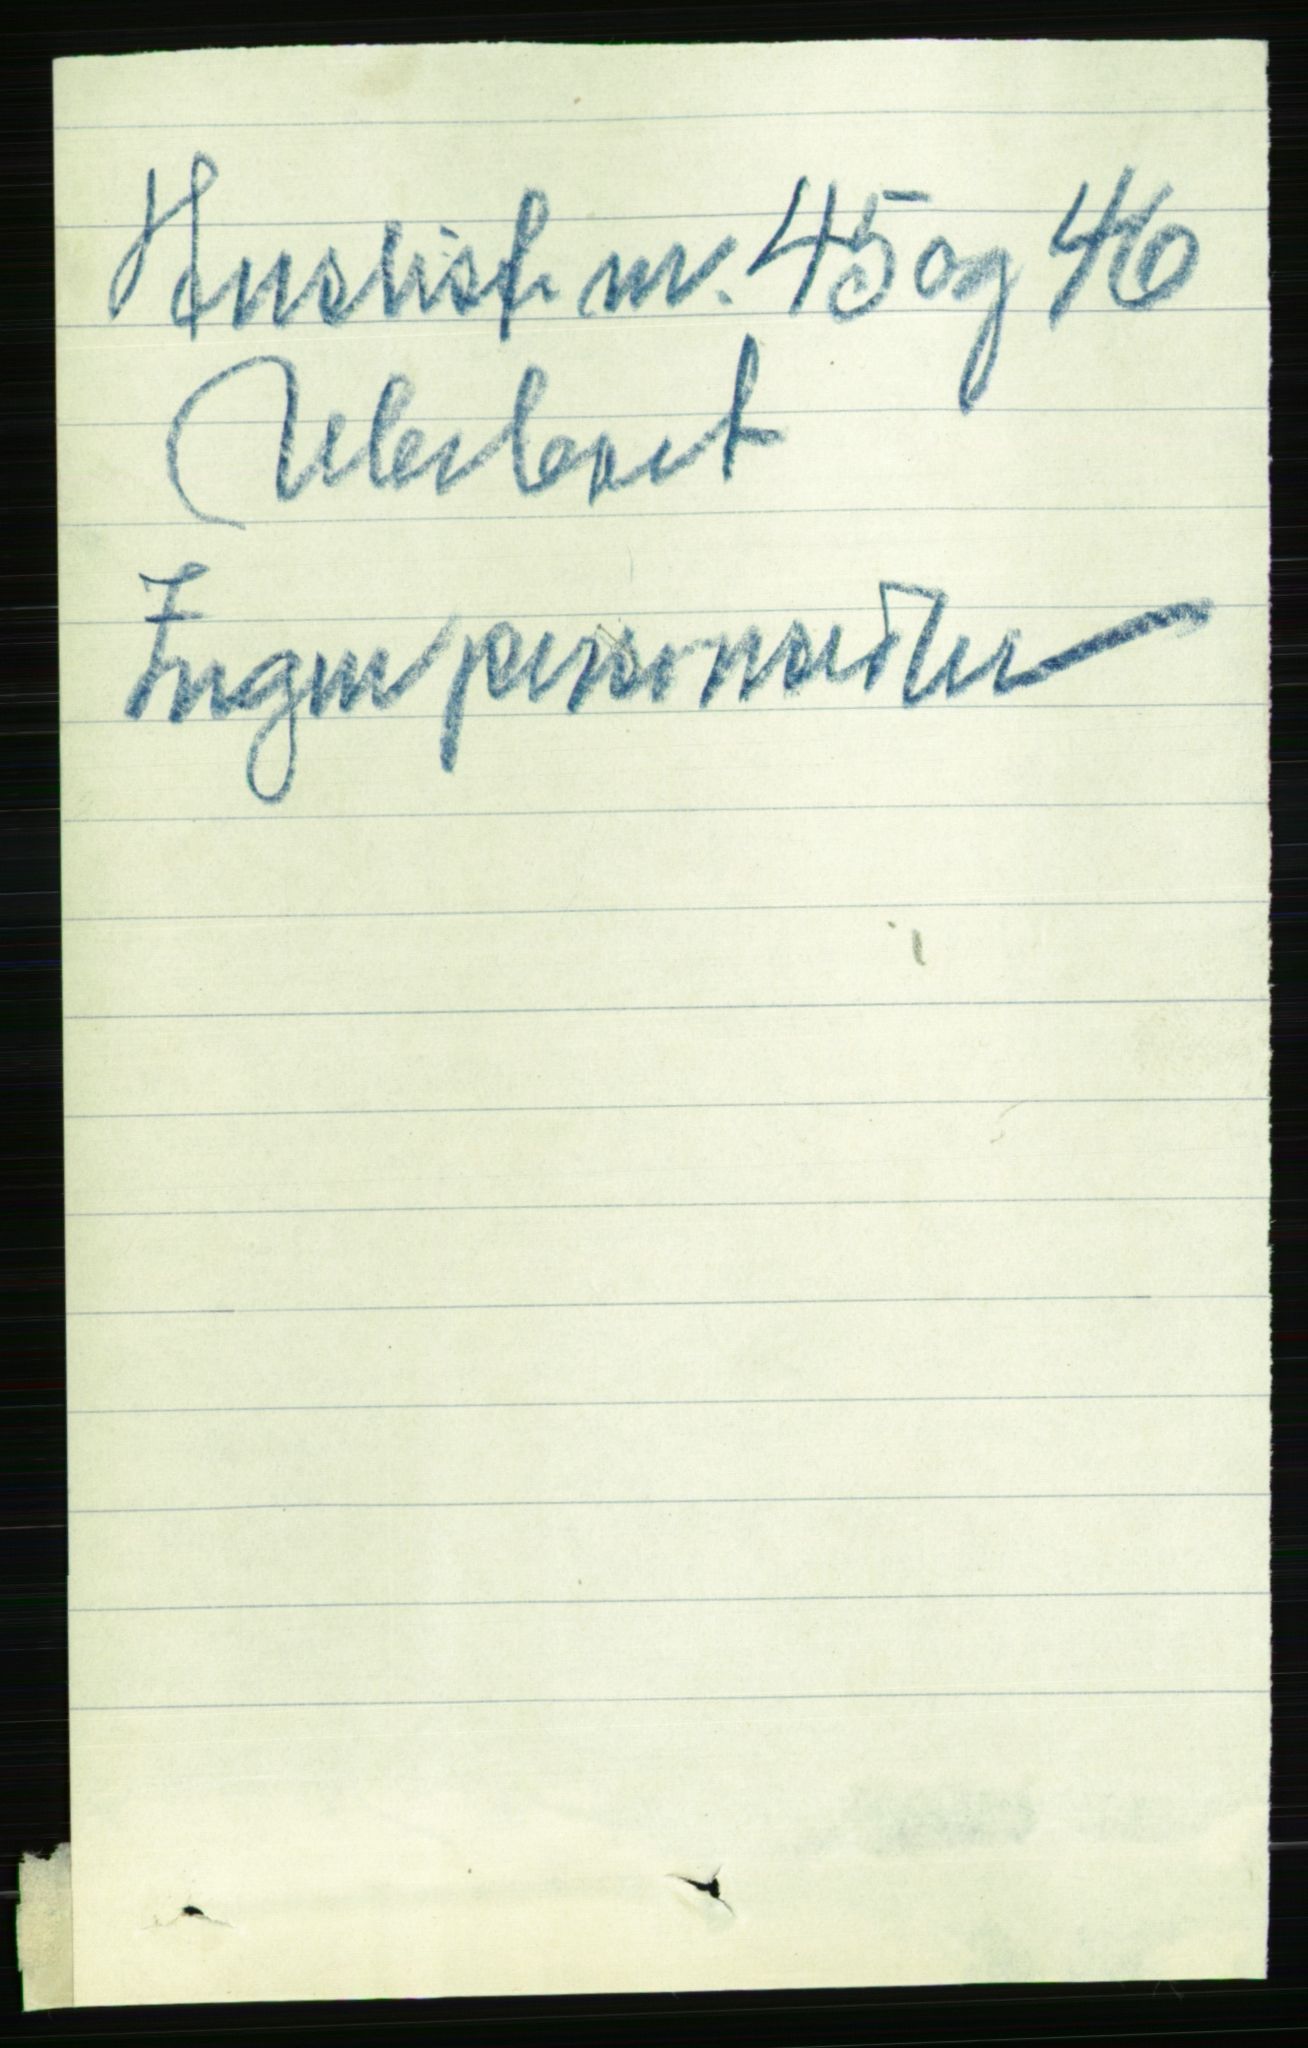 Huslist nr. 45 og 46
Ubeboet
Ingen personsedler